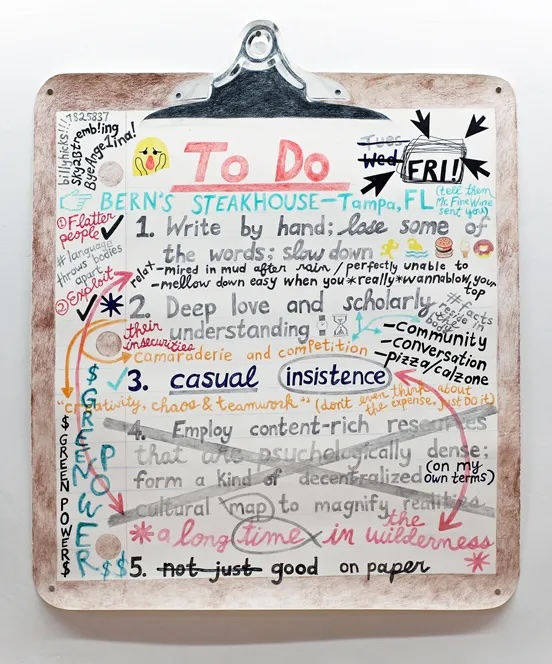 billyhicks!!!7825837
Sky2Btremb!ing
ByeAnge1ina!
To Do
Tues
Wed
FRI!
BERN'S STEAKHOUSE—Tampa, FL
(tell them
Mr. Fine Wine
sent you)
① Flatter
people
#language
throws bodies
apart
② Exploit
their
insecurities
1. Write by hand; lose some of
the words; slow down
relax-mired in mud after rain/perfectly unable to
-mellow down easy when you*really*wannablow your
top
2. Deep love and scholarly
understanding
#facts
reside in
the
body
-community
-conversation
-pizza/calzone
camaraderie and competition
3. casual insistence
"creativity, chaos & teamwork" (don't even think about
the expense, just DO it)
4. Employ content-rich resources
that are psychologically dense;
form a kind of decentralized
(on my
own terms)
cultural map to magnify realities
*a long time in the wilderness
*
5. not just good on paper
$GREEN POWER$$
$GREEN POWER$